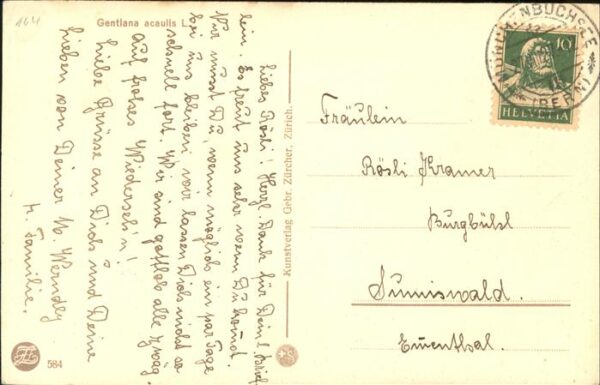 164
Gentiana acaulis L.
Liebes Rösli! Herzl. Dank für Dein l. Brief
lein. Es freut uns sehr wenn Du kommst.
Nur musst Du, wenn möglich ein par Tage
bei uns bleiben wir lassen Dich nicht so
schnell fort. Wir sind gottlob alle zwäg.
Auf frohes Wiederseh'n!
Liebe Grüsse an Dich und Deine
Lieben von Deiner M. Werndly
u. Familie.
Kunstverlag Gebr. Zürcher, Zürich.
MÜNCHENBUCHSEE
(BERN)
10
HELVETIA
Fräulein
Rösli Kramer
Burgbühl
Sumiswald.
Emmenthal.
584